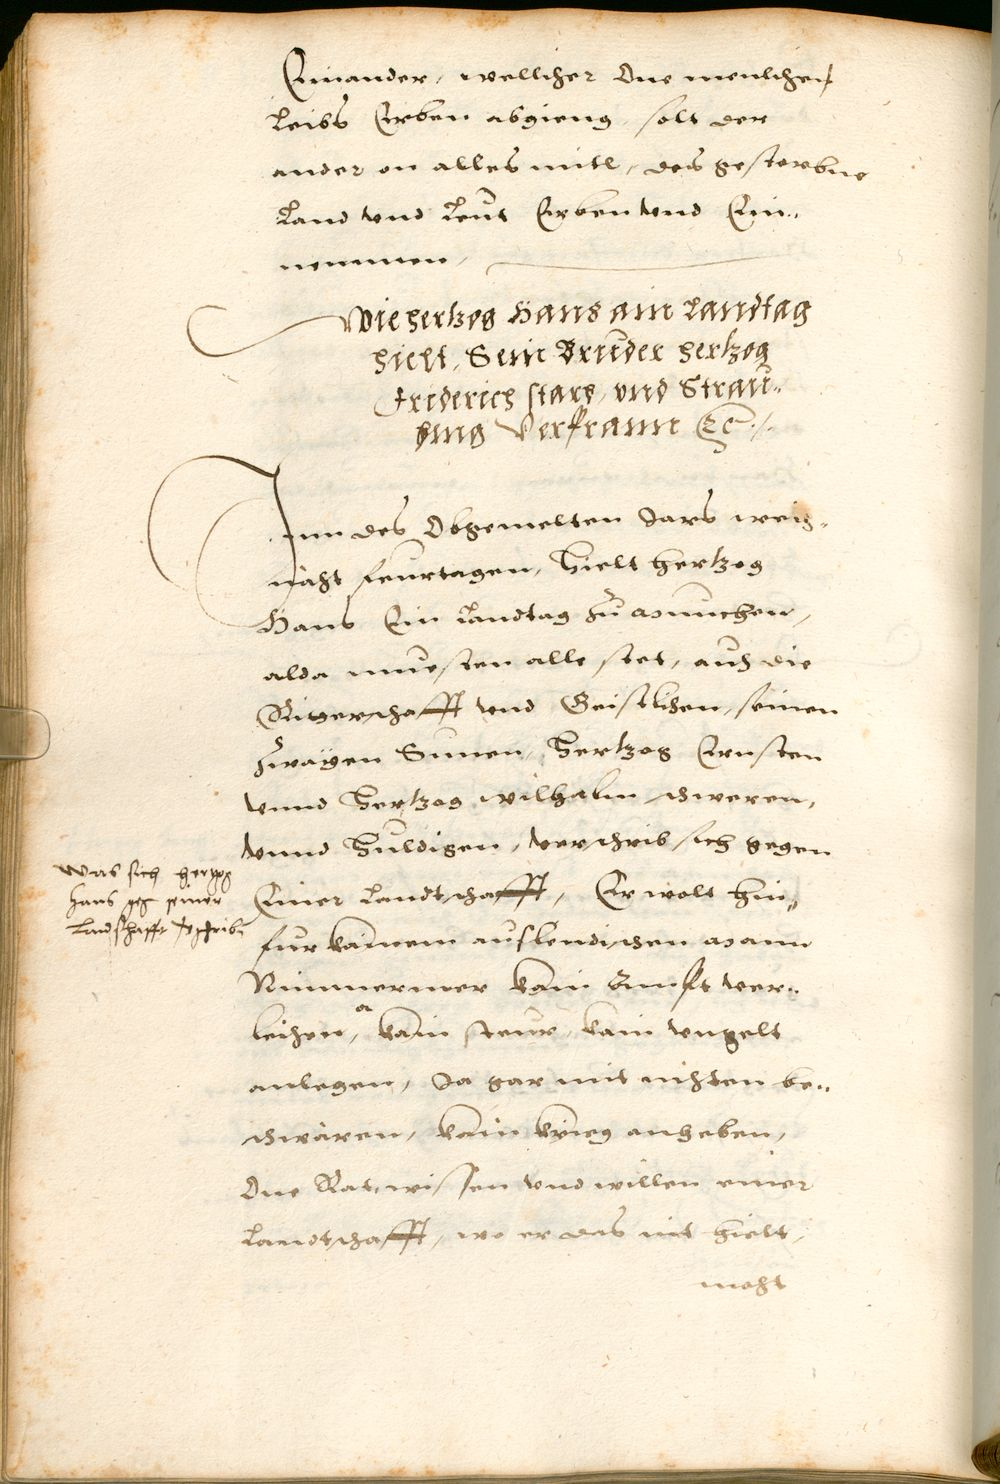 Einander, wellicher One menlichen
Leibs Erben abgieng, solt der
ander on alles mitl, des gestorbne
Land vnd Leut Erben vnd Ein„
nemmen,
Wie hertzog Hans ain Landtag
hielt, Sein Brueder hertzog
Friderich starb, vnd Strau„
bing Verkramt ꝛc.
Inn des Obgemelten Jars weih„
nächt feurtagen, hielt hertzog
Hans Ein Landtag zu München,
alda muesten alle stet, auch die
Ritterschafft vnd Geistlichen, seinen
zwayen Sunen, Hertzog Ernsten
vnnd Hertzog Wilhalm, schweren,
vnnd Huldigen, verschrib sich gegen
Einer Landtschafft, Er wolt hin„
fur kainem auslendischen Mann
Nimmermer kain Zunft ver„
leihen, kain steur, kain vngelt
anlegen, Ja gar mit nichten be„
schwären, kain krieg anheben,
One Rat, wissen vnd willen einer
Landtschafft, wo er das nit hielt,
mocht
Was sich hertzog
Hans geg seiner
Landschafft vschribn